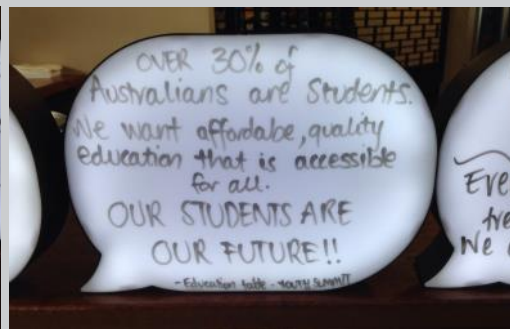 OVER 30% of
Australians are Students.
We want affordabe, quality
education that is accessible
for all.
OUR STUDENTS ARE
OUR FUTURE!!
- Education table - YOUTH SUMMIT
Eve
tre
We